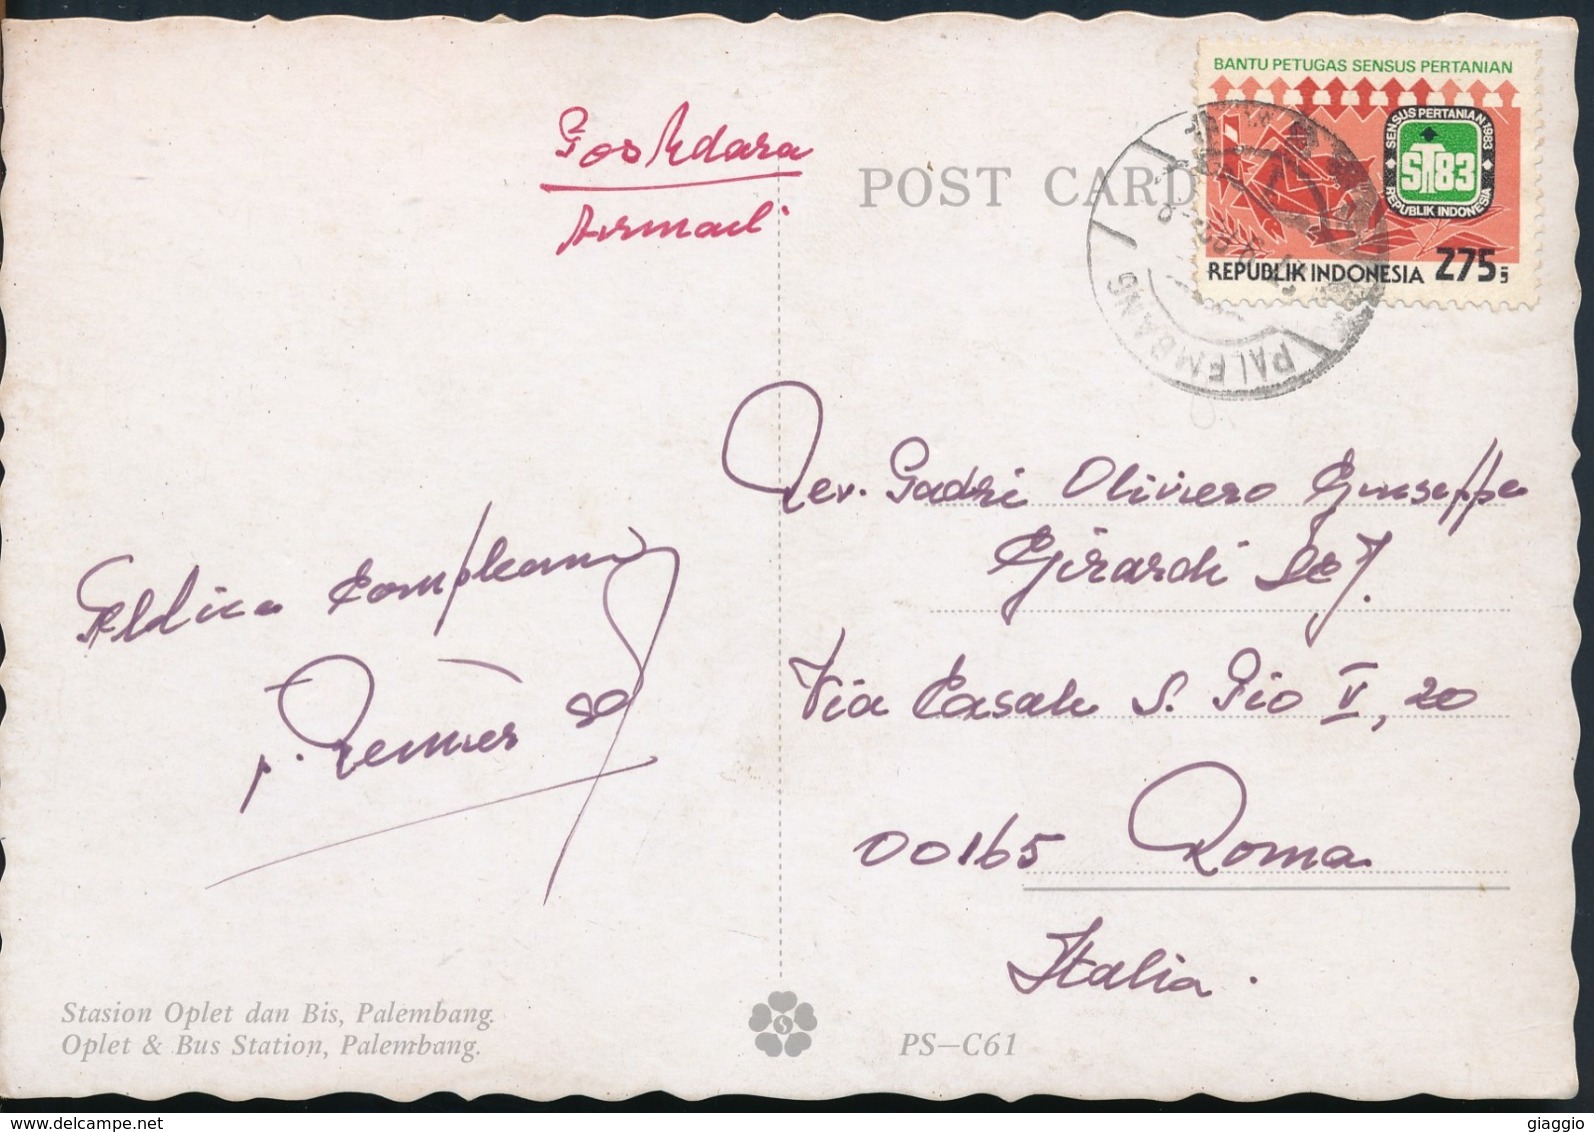 BANTU PETUGAS SENSUS PERTANIAN
SENSUS PERTANIAN 1983
ST83
REPUBLIK INDONESIA
REPUBLIK INDONESIA 275
POST CARD
PALEMBANG
Rev. Padri Oliviero Giuseppe
Girardi SCJ.
Via Casale S. Pio V, 20
00165 Roma
Italia.
p.
Stasion Oplet dan Bis, Palembang.
Oplet & Bus Station, Palembang.
PS–C61
giaggio
www.delcampe.net